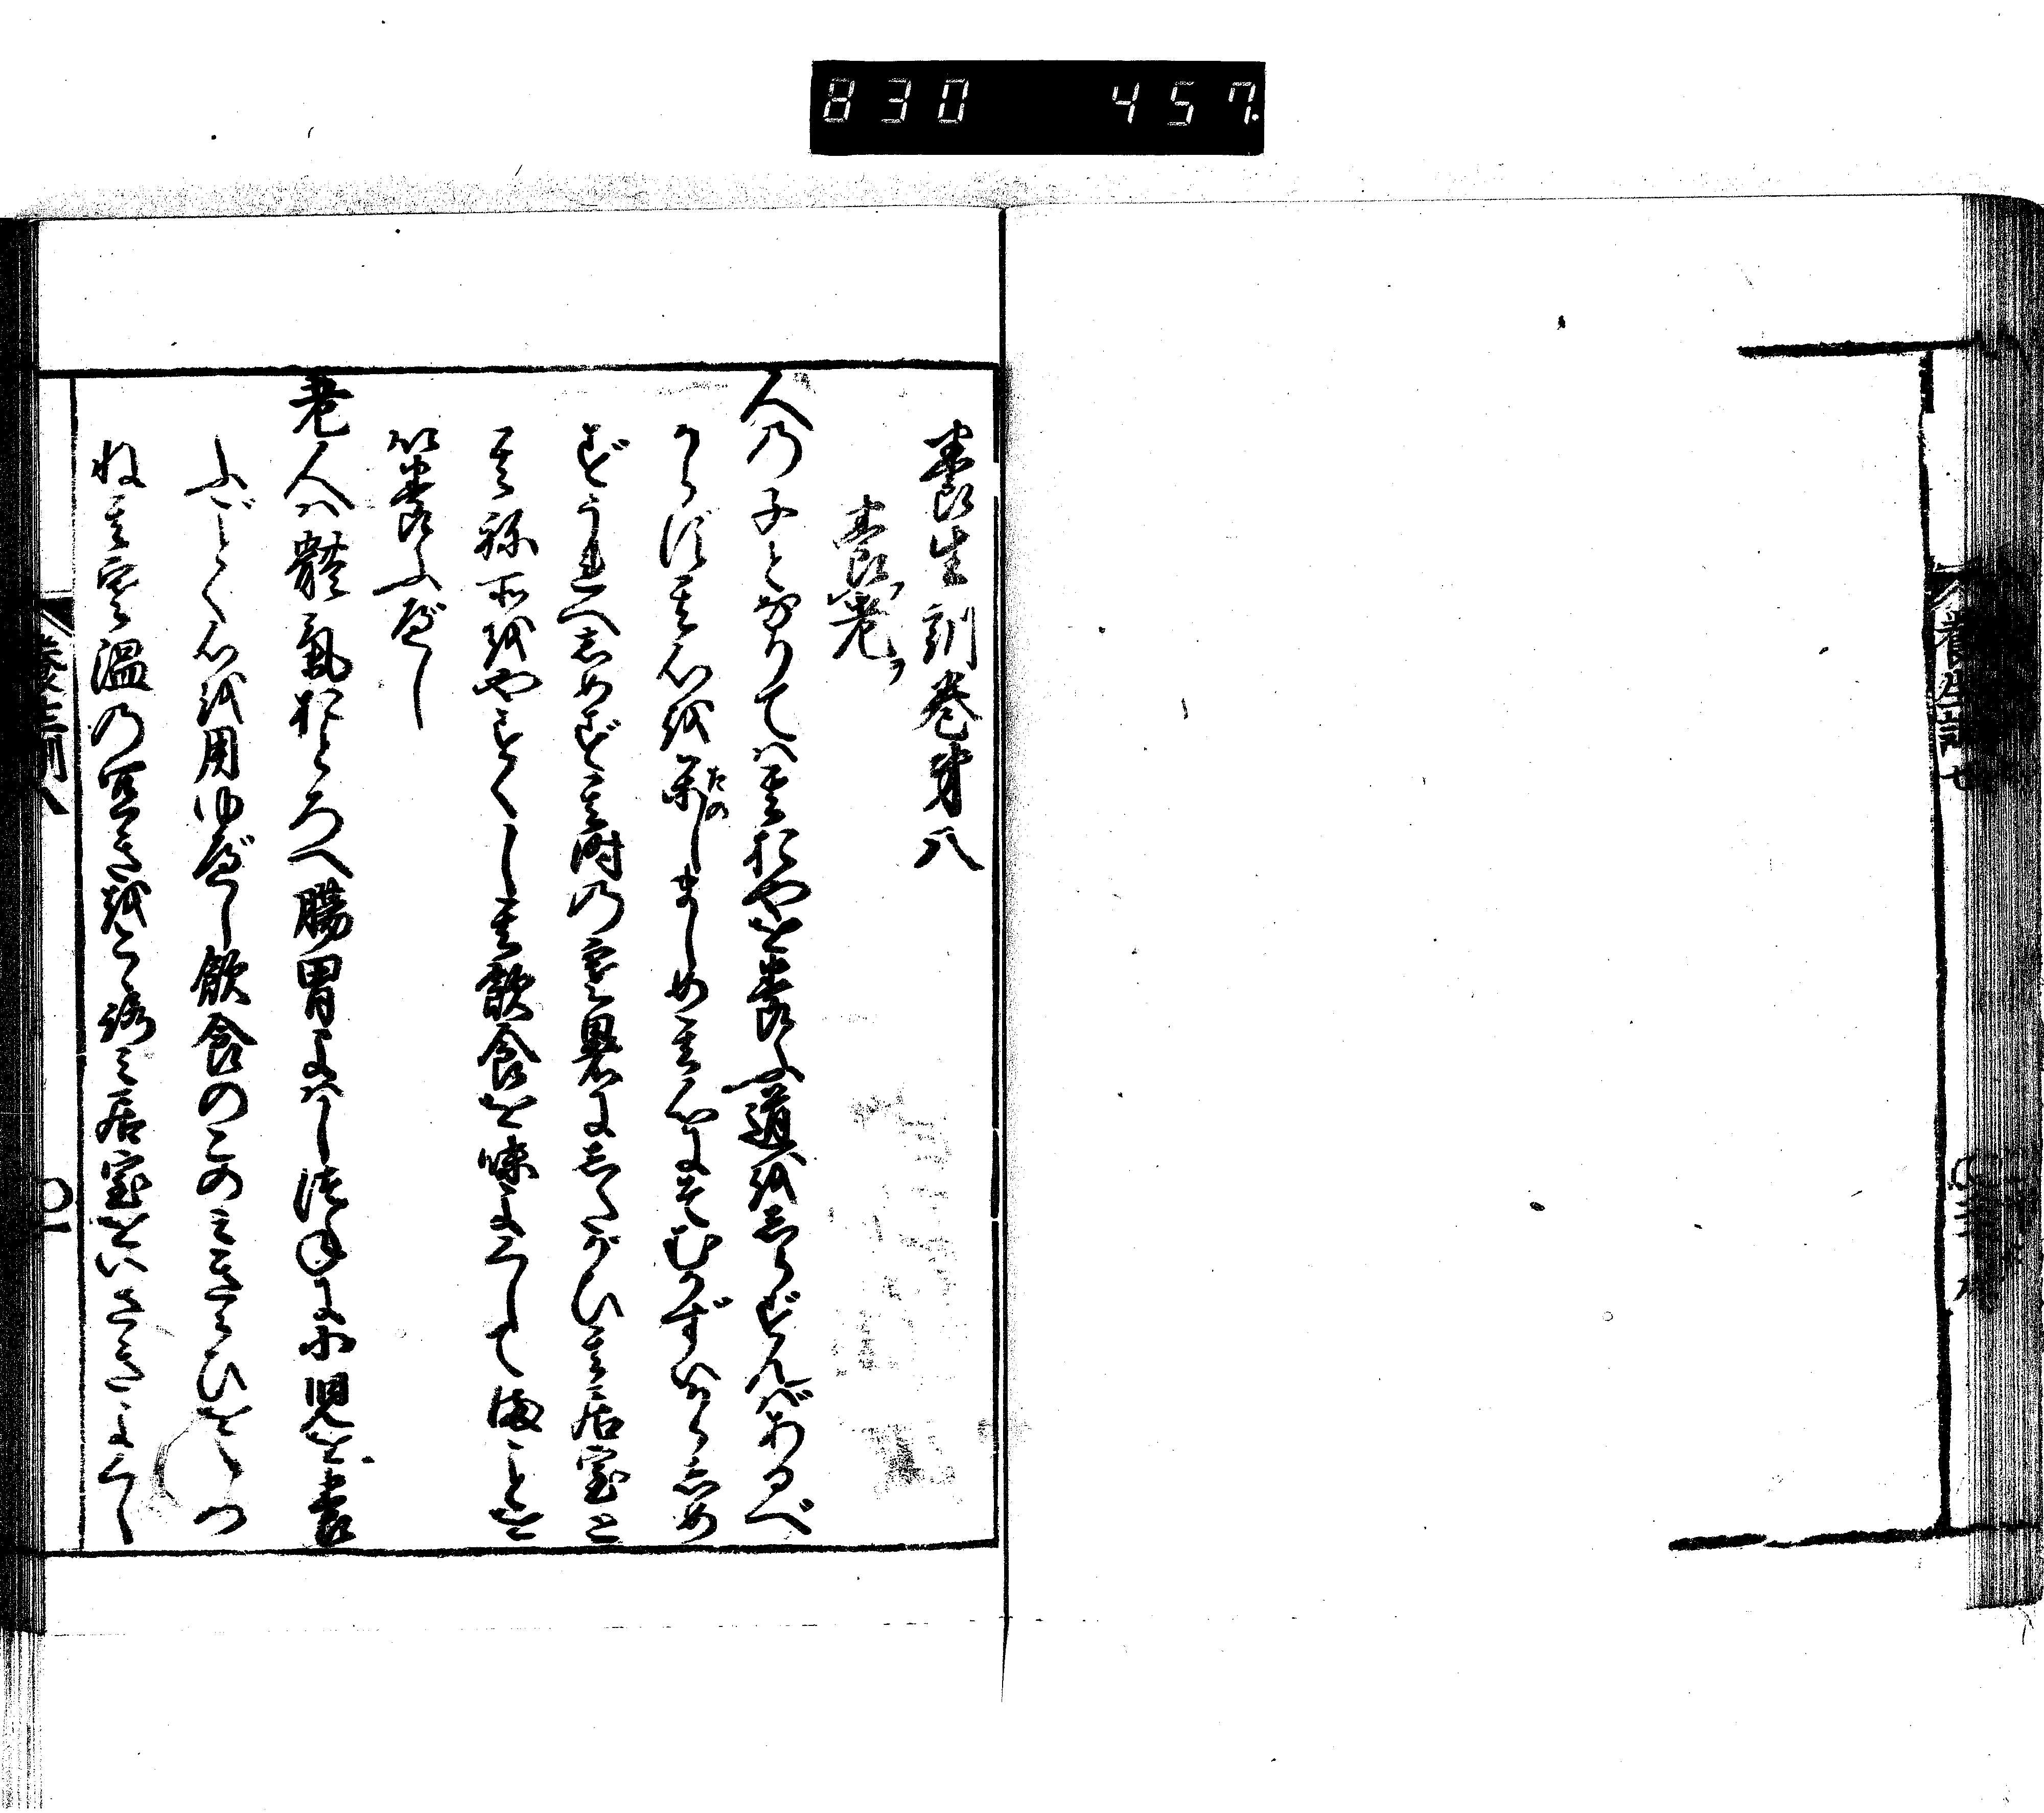 830 457
養生訓巻第八
養老
人の子となりては其おやを養ふ道をしらずんばあるべ
からず其心を楽しましめ其心にそむかずいからしめ
ずうれへしめず其時の寒暑にしたがひ其居室と
其祢所をやすくし其飲食を味よくしてまことを
以養ふべし
老人は體氣おとろへ腸胃よはしつねに小児を養
ふごとく心を用ゆべし飲食のこのみきらひをたつ
ね其寒温の宜きをこゝろみ居室をいさぎよくし